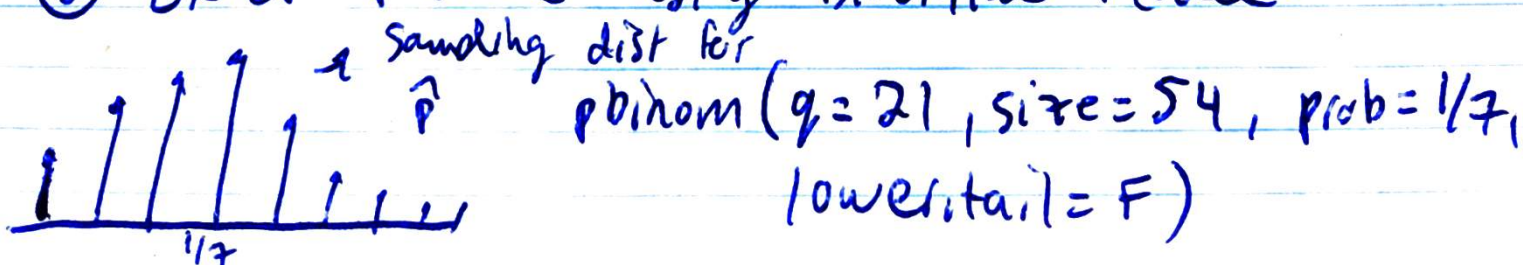 sampling dist for
p̂
pbinom(q=21, size=54, prob=1/7,
lower.tail=F)
1/7